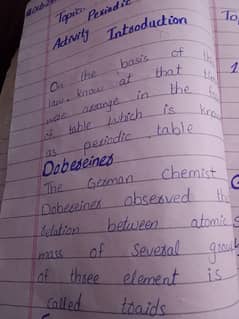 Topic: Periodic
Activity Introduction
On the basis of the
law know at that
were arrange in the
of table which is
as periodic table
Dobereiner
The German Chemist
Dobereiner observed the
relation between atomic
mass of Several
of three element is
called traids
To
1